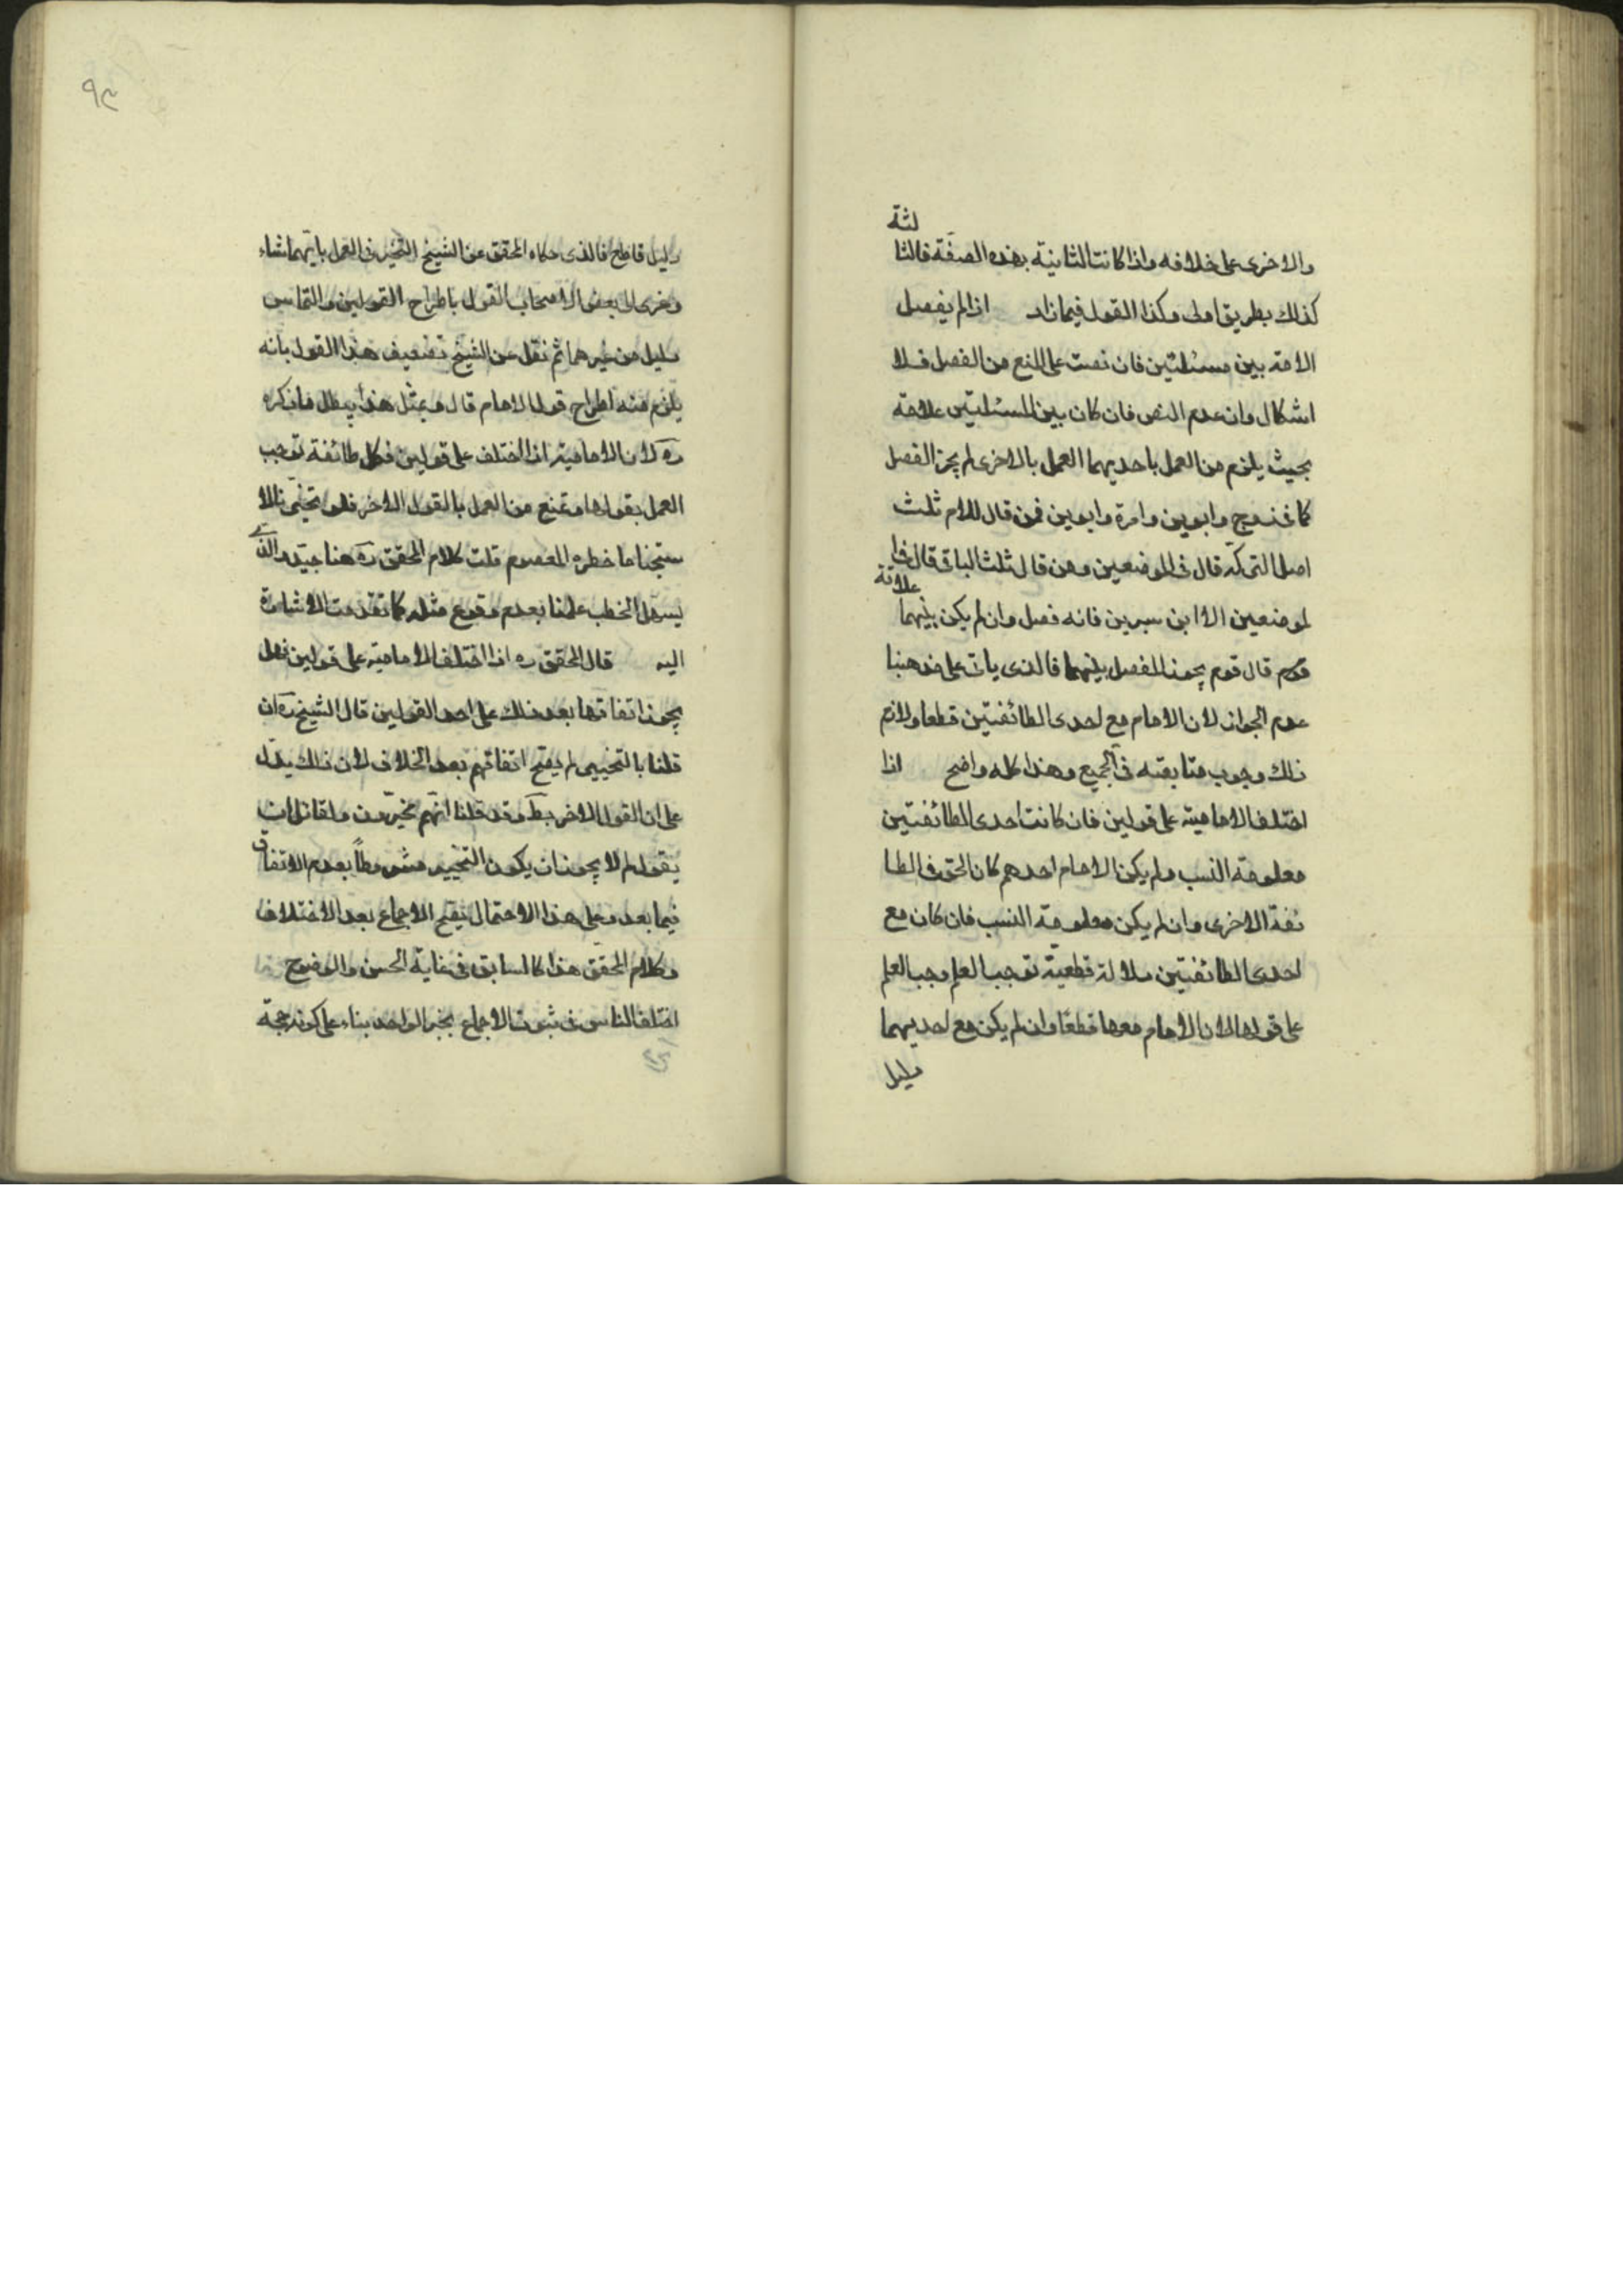 والاخرى على خلافه واذا كانت الثانية بهذه الصفة فالثا
لثة
كذلك بطريق اولى وكذا القول فيما زاد اذا لم يفصل
الامة بين مسئلتين فان نصت على المنع من الفصل فلا
اشكال وان عدم النص فان كان بين المسئلتين علاقة
بحيث يلزم من العمل باحديهما العمل بالاخرى لم يجز الفصل
كما فى زوج وابوين وامرة وابوين فمن قال للام ثلث
اصل التركة قال فى الموضعين ومن قال ثلث الباقى قال فى ا
لموضعين الا ابن سيرين فانه فصل وان لم يكن بينهما
علاقة
قال قوم يجوز الفصل بينهما فالذى ياتى على مذهبنا
عدم الجواز لان الامام مع احدى الطائفتين قطعا ولازم
ذلك وجوب متابعته فى الجميع وهذا كله واضح اذا
اختلف الامامية على قولين فان كانت احدى الطائفتين
معلومة النسب ولم يكن الامام احدهم كان الحق فى الطا
ئفة الاخرى وان لم يكن معلومة النسب فان كان مع
احدى الطائفتين دلالة قطعية توجب العلم وجب العلم
على قولها لان الامام معها قطعا وان لم يكن مع احديهما
دليل
٩٤
دليل قاطع فالذى حكاه المحقق عن الشيخ التخيير فى العمل بايهما شاء
وعزى الى بعض الاصحاب القول باطراح القولين والتماس
دليل من غيرهما ثم نقل عن الشيخ تضعيف هذا القول بانه
يلزم منه اطراح قول الامام قال وبمثل هذا يبطل ما ذكره
ره لان الامامية اذا اختلف على قولين فكل طائفة توجب
العمل بقولها وتمنع من العمل بالقول الاخر فلو تخيرنا لا
ستبحنا ما خطره المعصوم قلت كلام المحقق ره هنا جيد والذى
يسهل الخطب علمنا بعدم وقوع مثله كما تقدمت الاشارة
اليه قال المحقق ره اذا اختلف الامامية على قولين فهل
يجوز اتفاقها بعد ذلك على احد القولين قال الشيخ ره ان
قلنا بالتخيير لم يصح اتفاقهم بعد الخلاف لان ذلك يدل
على ان القول الاخر بط وقد قلنا انهم مخيرون ولقائل ان
يقول لم لا يجوز ان يكون التخيير مشروطا بعدم الاتفاق
فيما بعد وعلى هذا الاحتمال يصح الاجماع بعد الاختلاف
وكلام المحقق هذا كالسابق فى غاية الحسن والوضوح
اختلف الناس فى ثبوت الاجماع بخبر الواحد بناء على كونه حجة